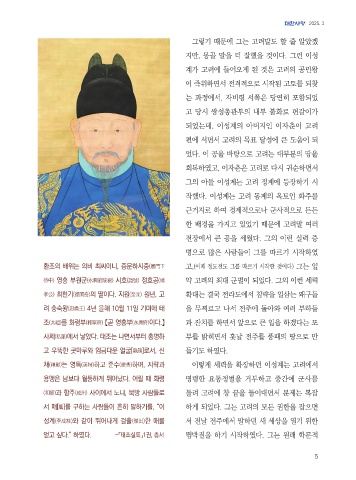 대한사랑 2025. 3
그렇기 때문에 그는 고려말도 할 줄 알았겠
지만, 몽골 말을 더 잘했을 것이다. 그런 이성
계가 고려에 들어오게 된 것은 고려의 공민왕
이 즉위하면서 전격적으로 시작된 고토를 되찾
는 과정에서, 자비령 서쪽은 당연히 포함되었
고 당시 쌍성총관부의 내부 불화로 편갈이가
되었는데, 이성계의 아버지인 이자춘이 고려
편에 서면서 고려의 목표 달성에 큰 도움이 되
었다. 이 공을 바탕으로 고려는 대부분의 땅을
회복하였고, 이자춘은 고려로 다시 귀순하면서
그의 아들 이성계는 고려 정계에 등장하기 시
작했다. 이성계는 고려 동계의 옥토인 화주를
근거지로 하며 경제적으로나 군사적으로 든든
한 배경을 가지고 있었기 때문에 고려말 여러
전장에서 큰 공을 세웠다. 그의 이런 실력 증
명으로 많은 사람들이 그를 따르기 시작하였
고,(이때 정도전도 그를 따르기 시작한 것이다) 그는 일
약 고려의 최대 군벌이 되었다. 그의 이런 세력
확대는 결국 전라도에서 침략을 일삼는 왜구들
을 무찌르고 나서 전주에 돌아와 여러 부하들
과 잔치를 하면서 앞으로 큰 일을 하겠다는 포
부를 밝히면서 훗날 전주를 풍패의 땅으로 만
들기도 하였다.
이렇게 세력을 확장하던 이성계는 고려에서
명령한 요동정벌을 거부하고 중간에 군사를
돌려 고려에 창 끝을 들이대면서 본색는 복잡
하게 되었다. 그는 고려의 모든 권한을 잡으면
서 전날 전주에서 말하던 새 세상을 열기 위한
행보를 하기 시작하였다. 그는 원래 학문적
환조의 배위는 의비 최씨이니, 증문하시중
영흥 부원군 시호 정효공
최한기의 딸이다. 지원 원년, 고
려 충숙왕 4년 을해 10월 11일 기미에 태
조를 화령부【곧 영흥부이다.】
사저에서 낳았다. 태조는 나면서부터 총명하
고 우뚝한 콧마루와 임금다운 얼굴로서, 신
채는 영특하고 준수하며, 지략과
용맹은 남보다 월등하게 뛰어났다. 어릴 때 화령
과 함주 사이에서 노니, 북방 사람들로
서 매를 구하는 사람들이 흔히 말하기를, "이
성계와 같이 뛰어나게 걸출한 매를
얻고 싶다." 하였다. -『태조실록』1권, 총서
5